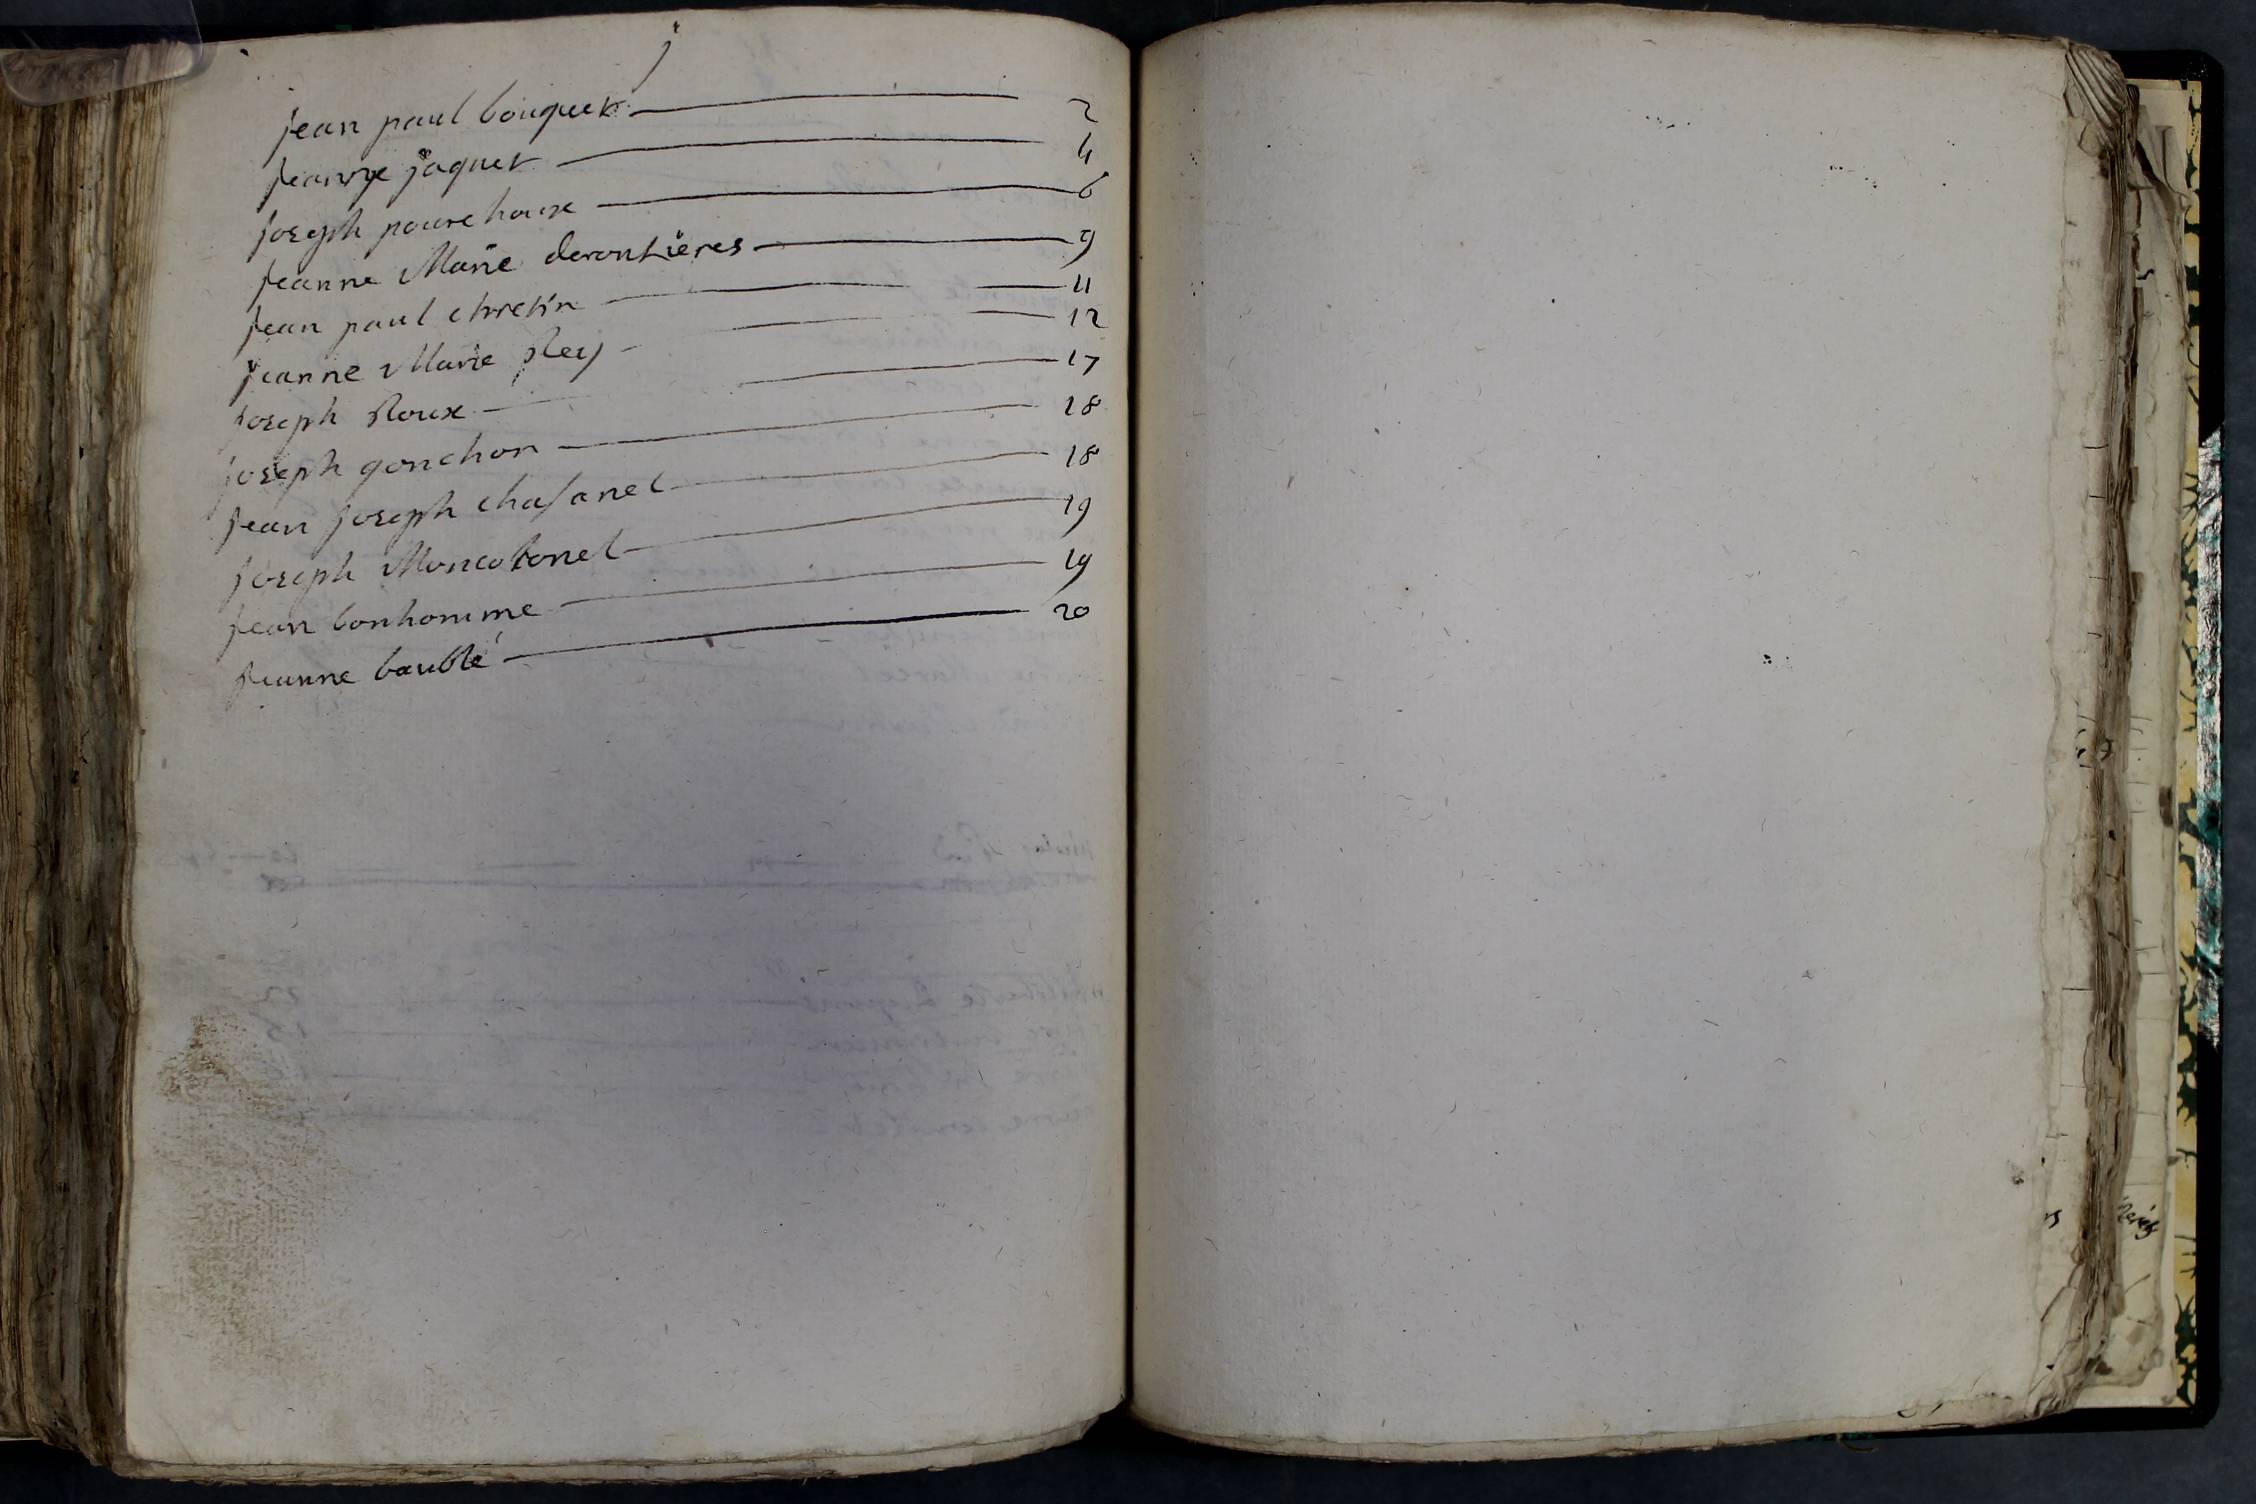 j
jean paul bouquet 2
jeanne jaquet 4
joseph pourchoux 6
jeanne Marie derontières 9
jean paul chretin 11
jeanne Marie Rey 12
joseph Roux 17
joseph gonchon 18
jean joseph chasanel 18
joseph Moncotonel 19
jean bonhomme 19
jeanne baublé 20